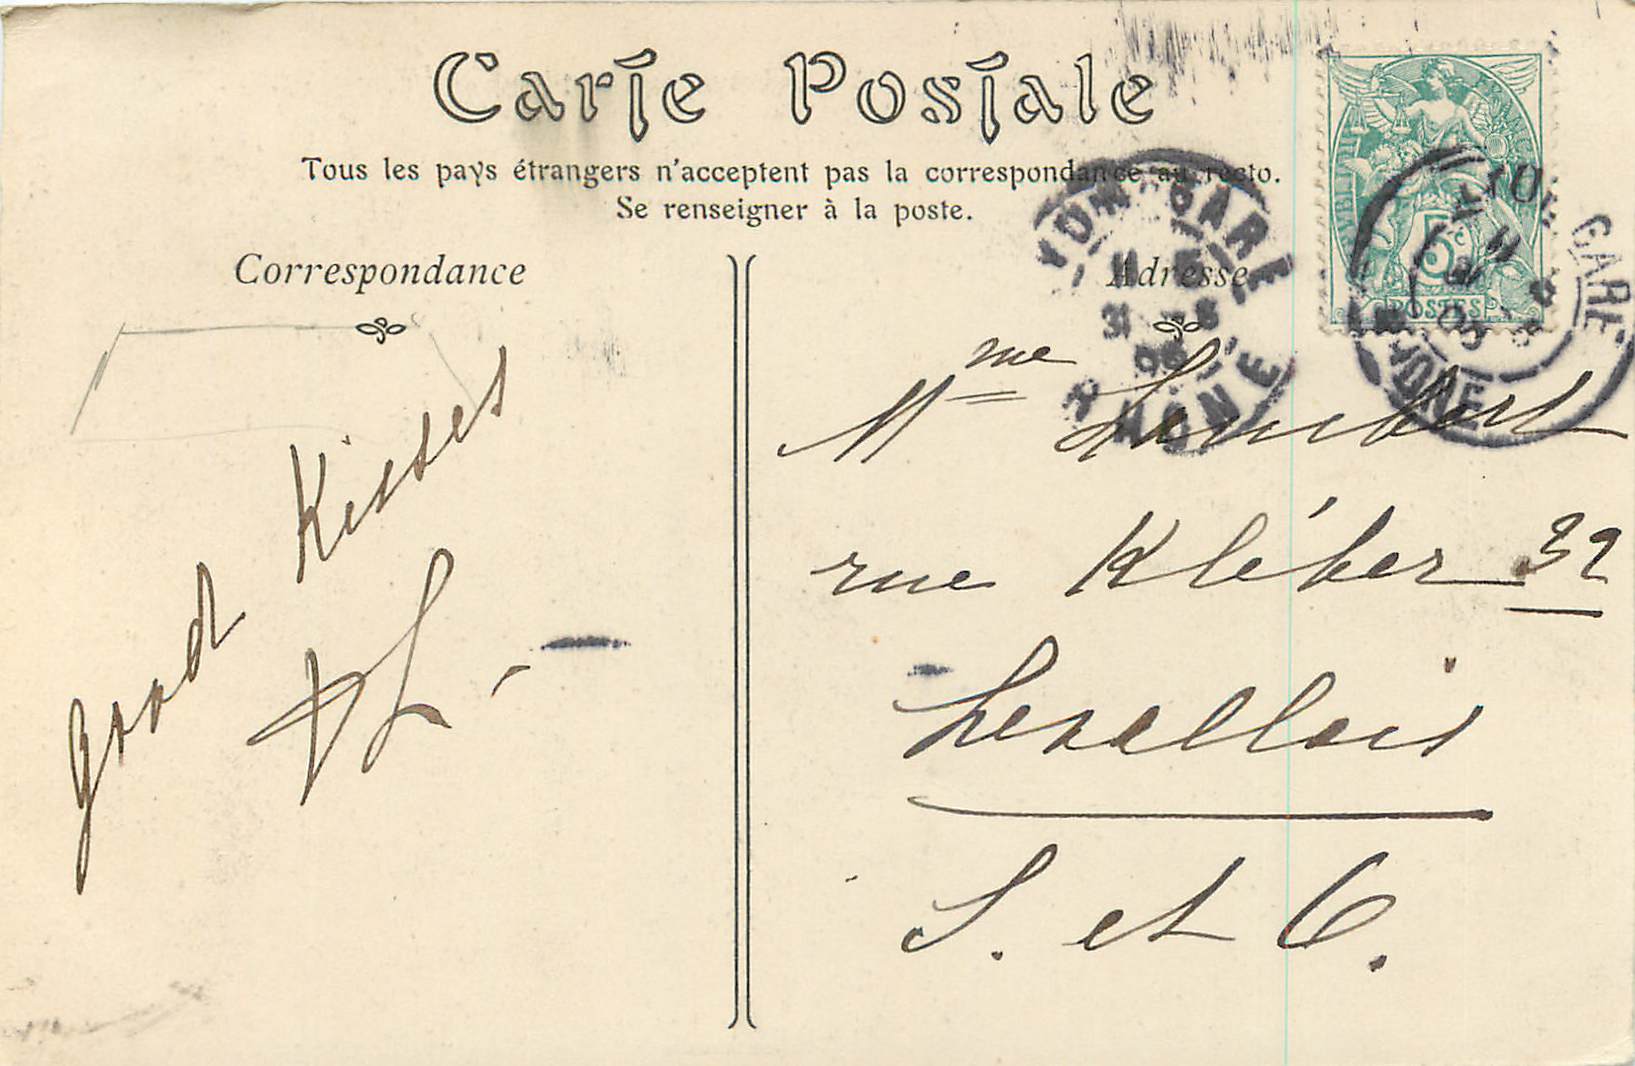 Carte Postale
Tous les pays étrangers n'acceptent pas la correspondance au recto.
Se renseigner à la poste.
Correspondance
Adresse
good Kisses
M^me Lambert
rue Kléber 32
Levallois
S. et O.
LYON GARE
RHONE
5c
POSTES
LYON GARE
RHONE